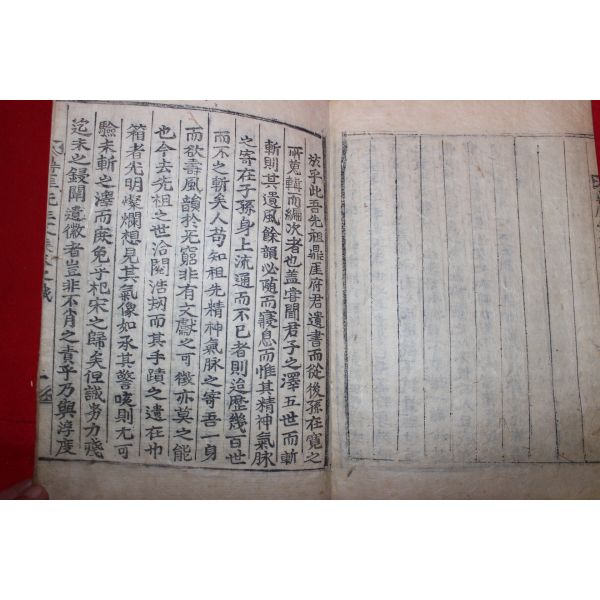 於乎此吾先祖鼎厓府君遺書而從後孫在寬之
所蒐輯而編次者也盖嘗聞君子之澤五世而斬
斬則其遺風餘韻必随而寢息而惟其精神氣脉
之寄在子孫身上流通而不已者則迨歷幾百世
而不之斬矣人苟知祖先精神氣脉之寄吾一身
而欲壽風韻於无窮非有文獻之可徵亦莫之能
也今去先祖之世洽閱浩刼而其手蹟之遺在巾
箱者光明燦爛想見其氣像如承其警咳則尤可
驗未斬之澤而庶免乎杞宋之歸矣但識劣力殘
迄未之鋟闕遺徽者豈非不肖之責乎乃與淳度